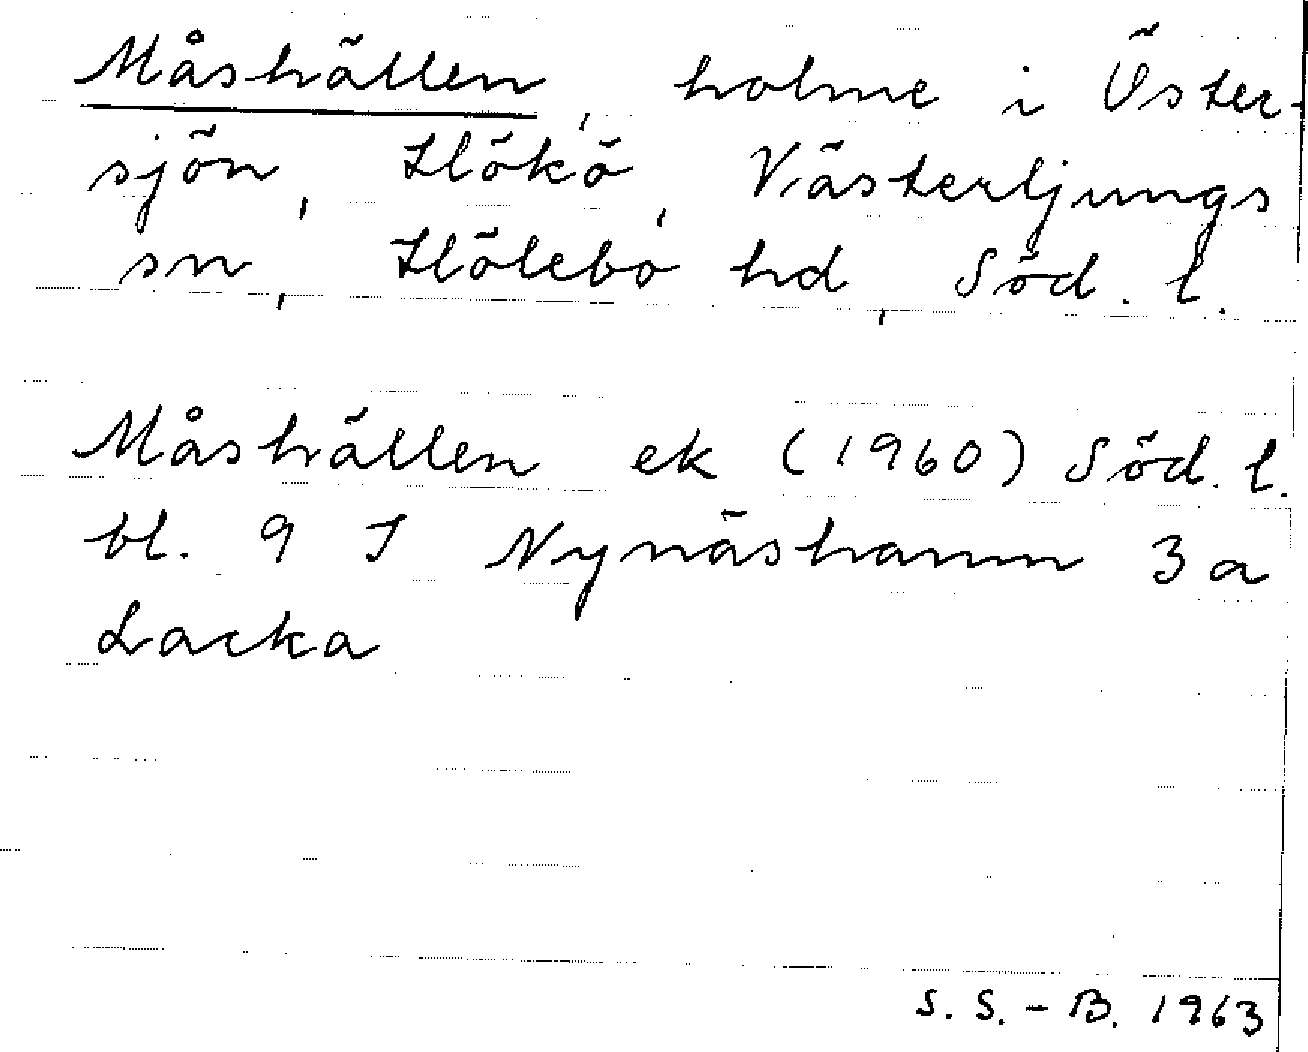 Måshällen, holme i Öster-
sjön, Hökö, Västerljungs
sn, Hölebo hd, Söd. l.
Måshällen ek (1960) Söd. l.
bl. 9 I Nynäshamn 3a
Lacka
S. S.-B. 1963